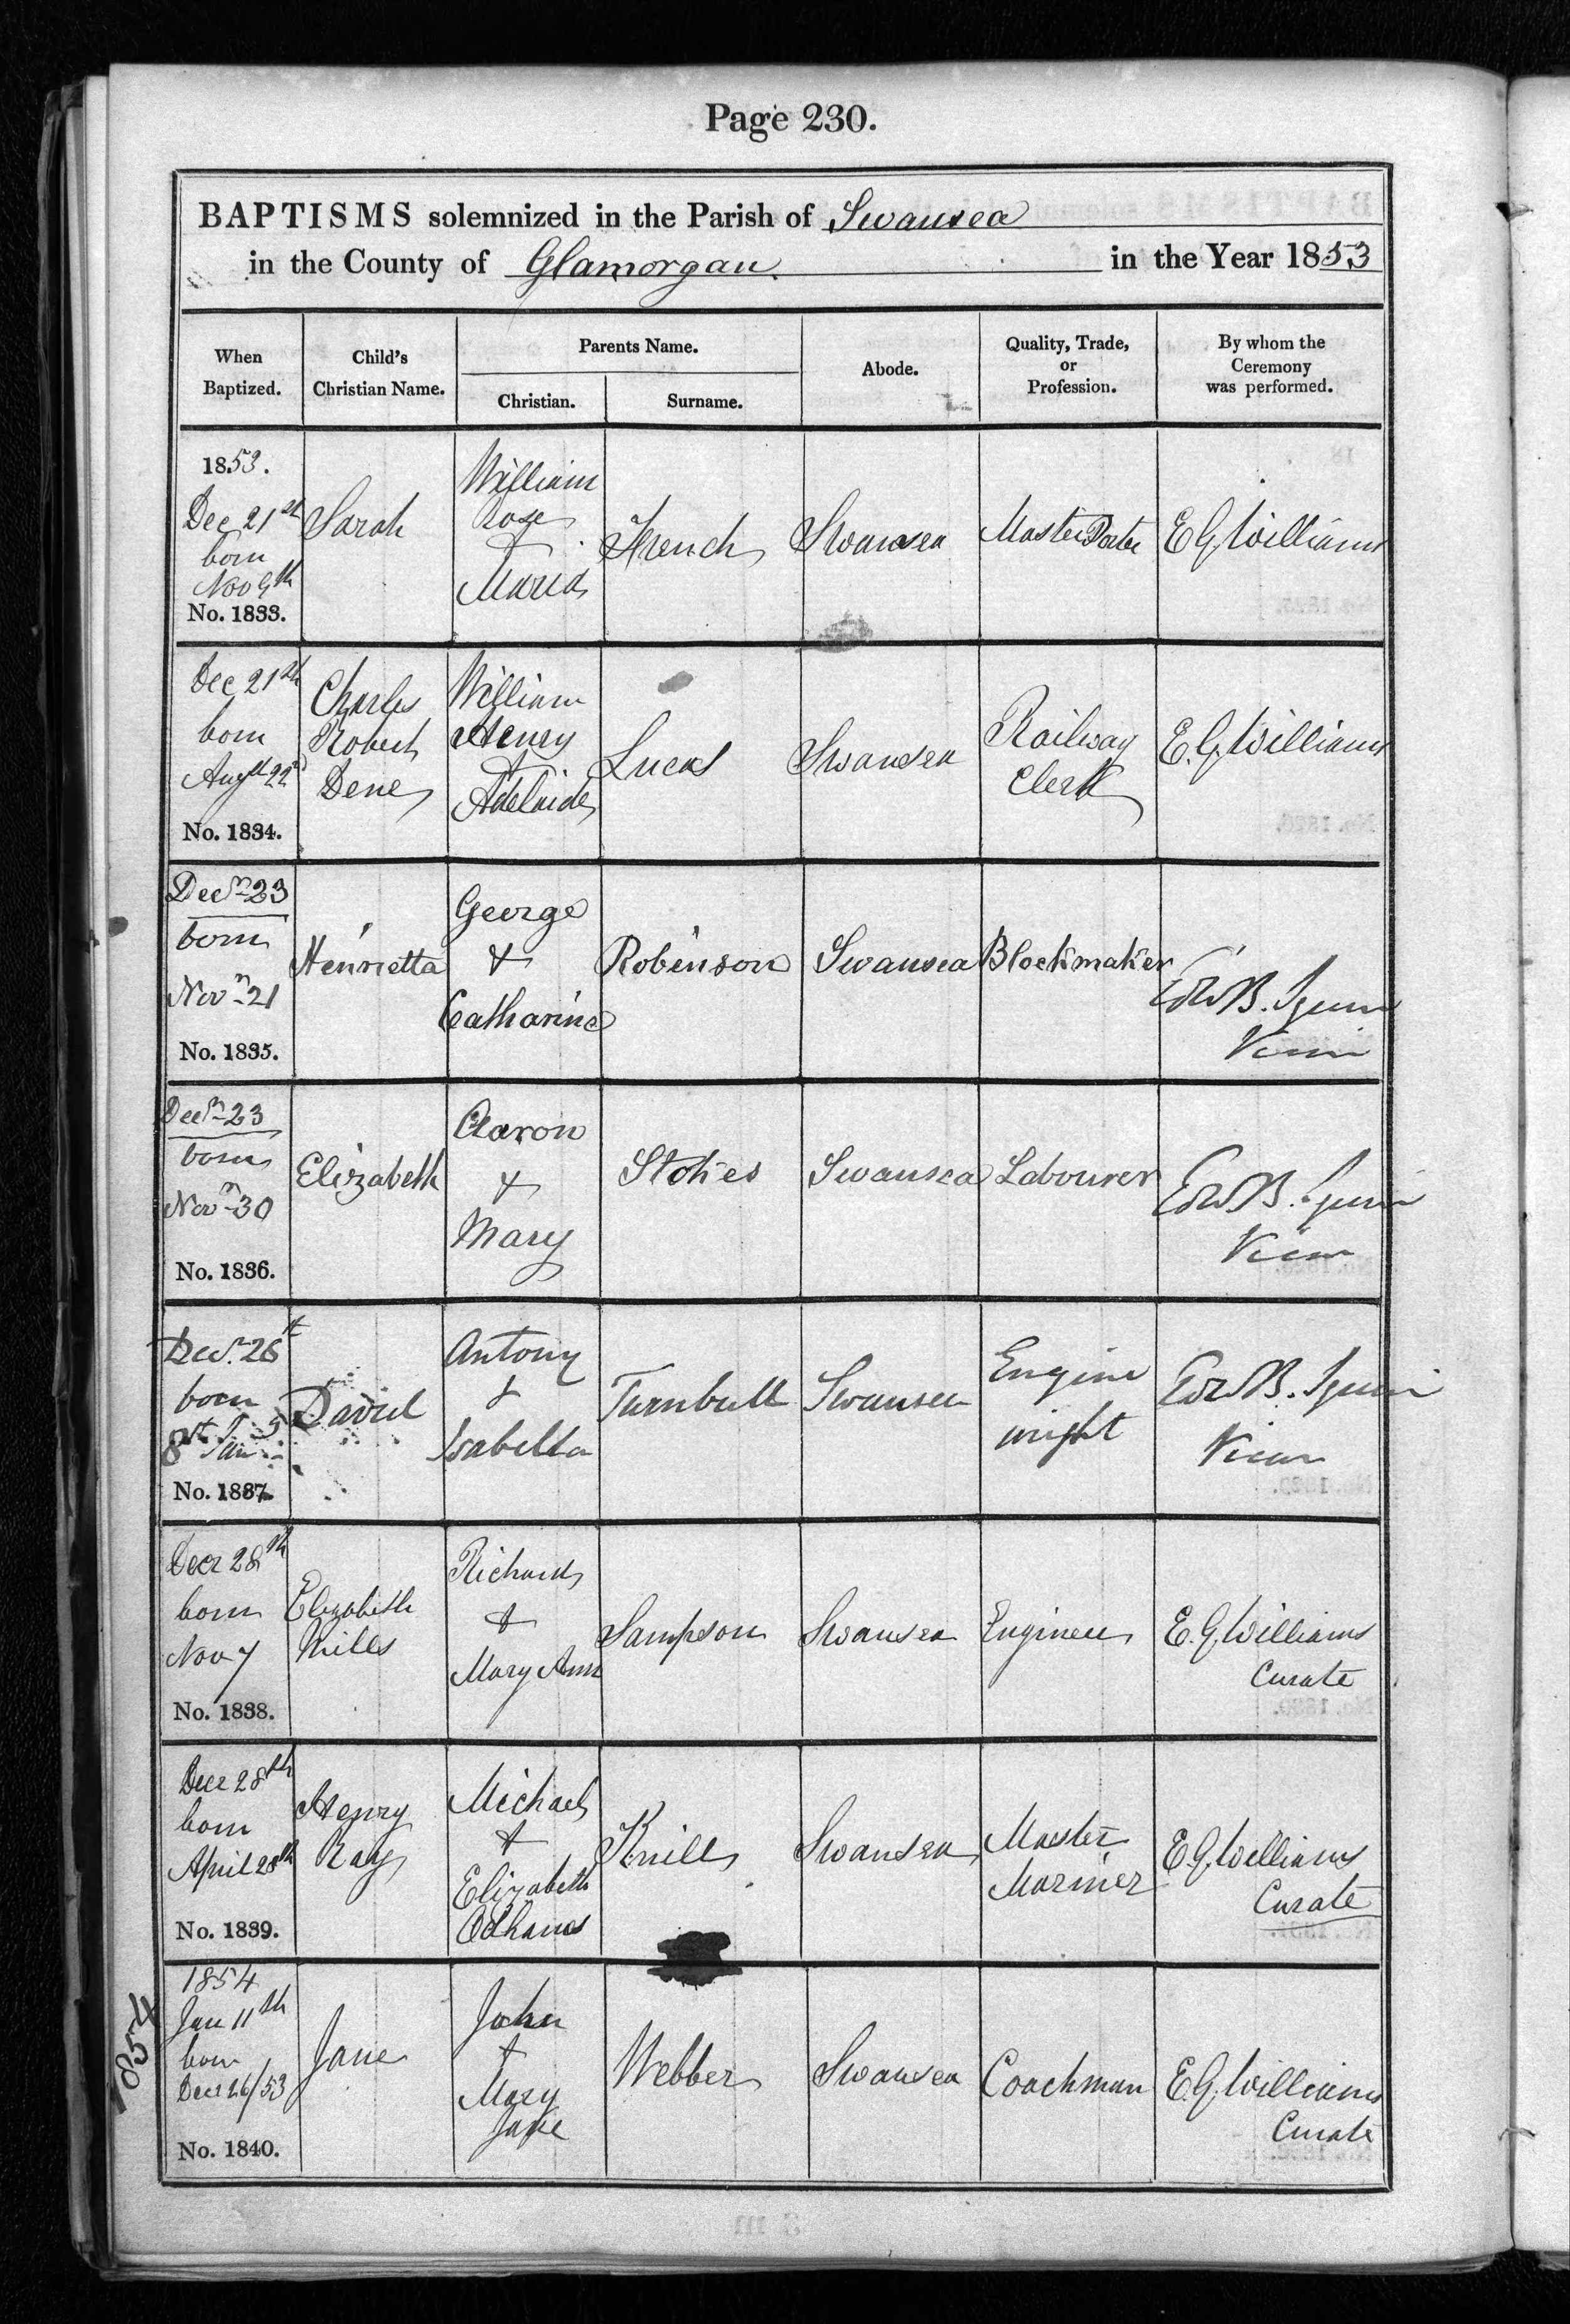 Page 230.
BAPTISMS solemnized in the Parish of Swansea
in the County of Glamorgan in the Year 1853
When Baptized.
Child's Christian Name.
Parents Name.
Christian.
Surname.
Abode.
Quality, Trade, or Profession.
By whom the Ceremony was performed.
1853.
Dec 21st
born
Nov 9th
No. 1833.
Sarah
William
Rose
&
Maria
French
Swansea
Master Porter
E G Williams
Dec 21st
born
Augst 22d
No. 1834.
Charles
Robert
Dene
William
Henry
&
Adelaide
Lucas
Swansea
Railway
Clerk
E. G. Williams
Decr 23
born
Novr 21
No. 1835.
Henrietta
George
&
Catharine
Robinson
Swansea
Blockmaker
Edw B. Squire
Vicar
Decr 23
born
Novr 30
No. 1836.
Elizabeth
Aaron
&
Mary
Stokes
Swansea
Labourer
Edw B. Squire
Vicar
Decr 26
born
8
No. 1837.
David
Antony
&
Isabella
Turnbull
Swansea
Engine
wright
Edw B. Squire
Vicar
Decr 28th
born
Nov 7
No. 1838.
Elizabeth
Mills
Richard
&
Mary Ann
Sampson
Swansea
Engineer
E. G. Williams
Curate
Decr 28th
born
April 28th
No. 1839.
Henry
Ray
Michael
&
Elizabeth
Odhams
Knill
Swansea
Master
Mariner
E. G. Williams
Curate
1854
1854
Jan 11th
born
Decr 26/53
No. 1840.
Jane
John
&
Mary
Jane
Webber
Swansea
Coachman
E. G. Williams
Curate